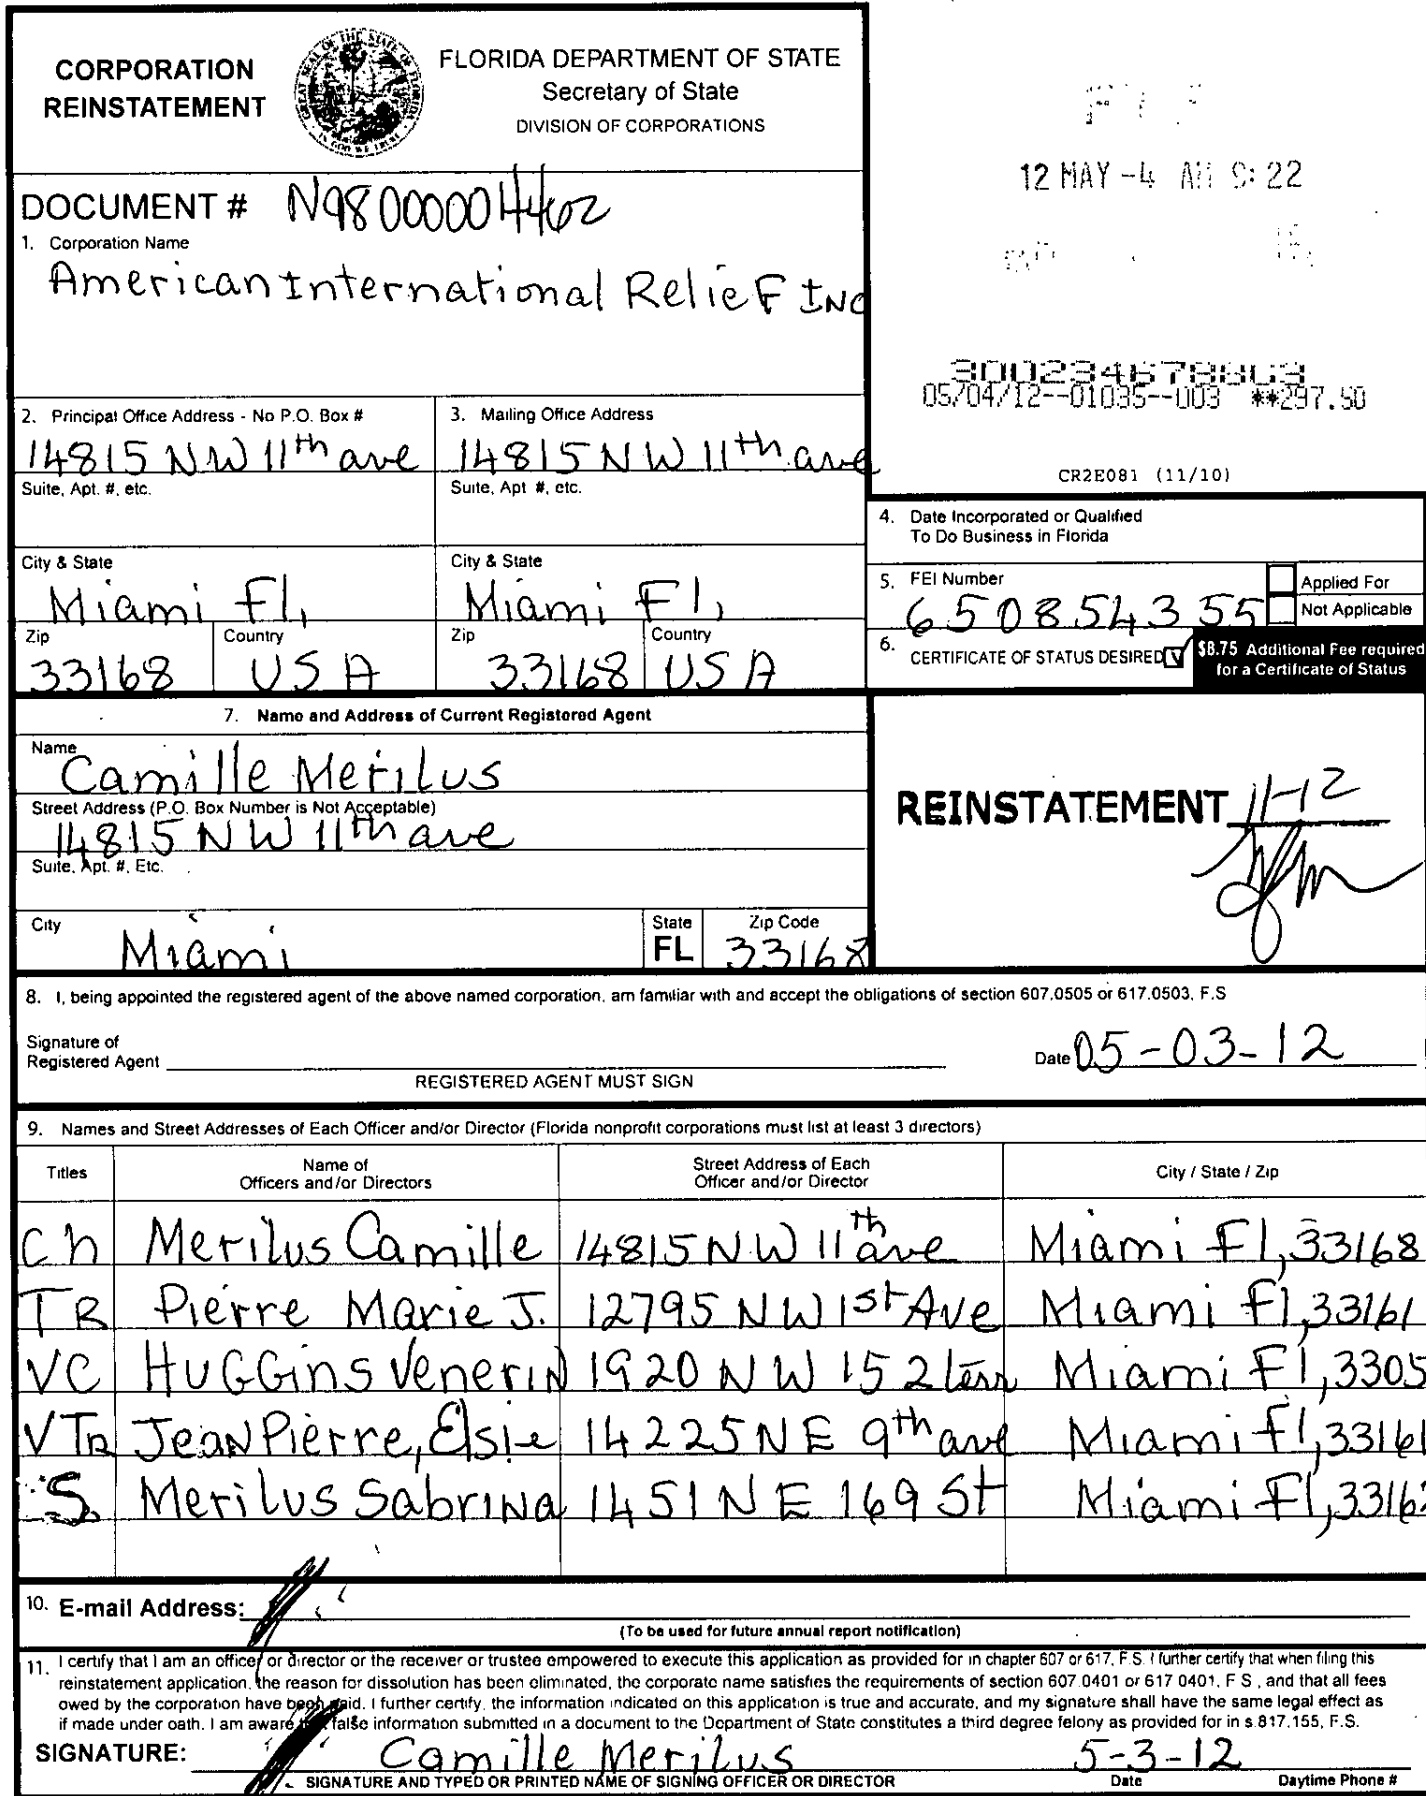 CORPORATION
REINSTATEMENT
GREAT SEAL OF THE STATE OF FLORIDA
IN GOD WE TRUST
FLORIDA DEPARTMENT OF STATE
Secretary of State
DIVISION OF CORPORATIONS
12 MAY -4 AM 9:22
DOCUMENT # N98000004462
1. Corporation Name
American International Relief INC
05/04/12--01035--003 **297.50
CR2E081 (11/10)
2. Principal Office Address - No P.O. Box #
14815 NW 11th ave
Suite, Apt. #, etc.
City & State
Miami Fl,
Zip Country
33168 USA
3. Mailing Office Address
14815 NW 11th ave
Suite, Apt #, etc.
City & State
Miami Fl,
Zip Country
33168 USA
4. Date Incorporated or Qualified
To Do Business in Florida
5. FEI Number
650854355
Applied For
Not Applicable
6. CERTIFICATE OF STATUS DESIRED
$8.75 Additional Fee required
for a Certificate of Status
7. Name and Address of Current Registered Agent
Name
Camille Merilus
Street Address (P.O. Box Number is Not Acceptable)
14815 NW 11th ave
Suite, Apt. #, Etc.
City State Zip Code
Miami FL 33168
REINSTATEMENT 11-12
8. I, being appointed the registered agent of the above named corporation, am familiar with and accept the obligations of section 607.0505 or 617.0503, F.S
Signature of
Registered Agent
Date 05-03-12
REGISTERED AGENT MUST SIGN
9. Names and Street Addresses of Each Officer and/or Director (Florida nonprofit corporations must list at least 3 directors)
Titles Name of Officers and/or Directors Street Address of Each Officer and/or Director City / State / Zip
Ch Merilus Camille 14815 NW 11th ave Miami Fl, 33168
TR Pierre Marie J. 12795 NW 1st Ave Miami Fl, 33161
VC HUGGins Venerin 1920 NW 152 terr Miami Fl, 3305
VTR Jean Pierre, Elsie 14225 NE 9th ave Miami Fl, 33161
S Merilus Sabrina 1451 NE 169 St Miami Fl, 3316
10. E-mail Address:
(To be used for future annual report notification)
11. I certify that I am an officer or director or the receiver or trustee empowered to execute this application as provided for in chapter 607 or 617, F.S. I further certify that when filing this
reinstatement application, the reason for dissolution has been eliminated, the corporate name satisfies the requirements of section 607.0401 or 617 0401, F S , and that all fees
owed by the corporation have been paid. I further certify, the information indicated on this application is true and accurate, and my signature shall have the same legal effect as
if made under oath. I am aware false information submitted in a document to the Department of State constitutes a third degree felony as provided for in s.817.155, F.S.
SIGNATURE: Camille Merilus 5-3-12
SIGNATURE AND TYPED OR PRINTED NAME OF SIGNING OFFICER OR DIRECTOR Date Daytime Phone #